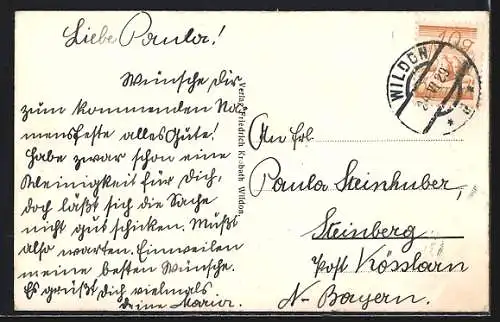 Liebe Paula!
Wünsche Dir
zum kommenden Na-
mensfeste alles Gute!
Habe zwar schon eine
Kleinigkeit für Dich,
doch läßt sich die Sache
nicht gut schicken. Mußt
also warten. Einweilen
meine besten Wünsche.
Es grüßt Dich vielmals
Deine Maria.
Verlag Friedrich Krobath Wildon.
10g
WILDON
VI 29
An Frl.
Paula Steinhuber,
Steinberg
Post Kösslarn
N-Bayern.